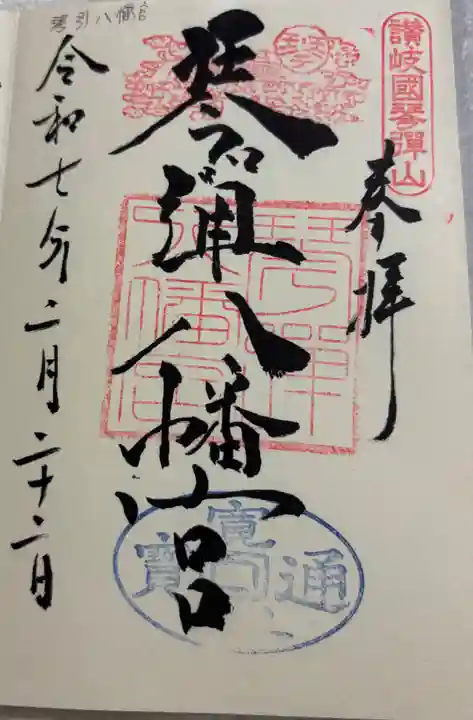 讃岐國琴彈山
奉拝
琴
琴弾八幡宮
琴彈
八幡宮
寛
通
寳
令和七年二月二十二日
琴引八幡宮